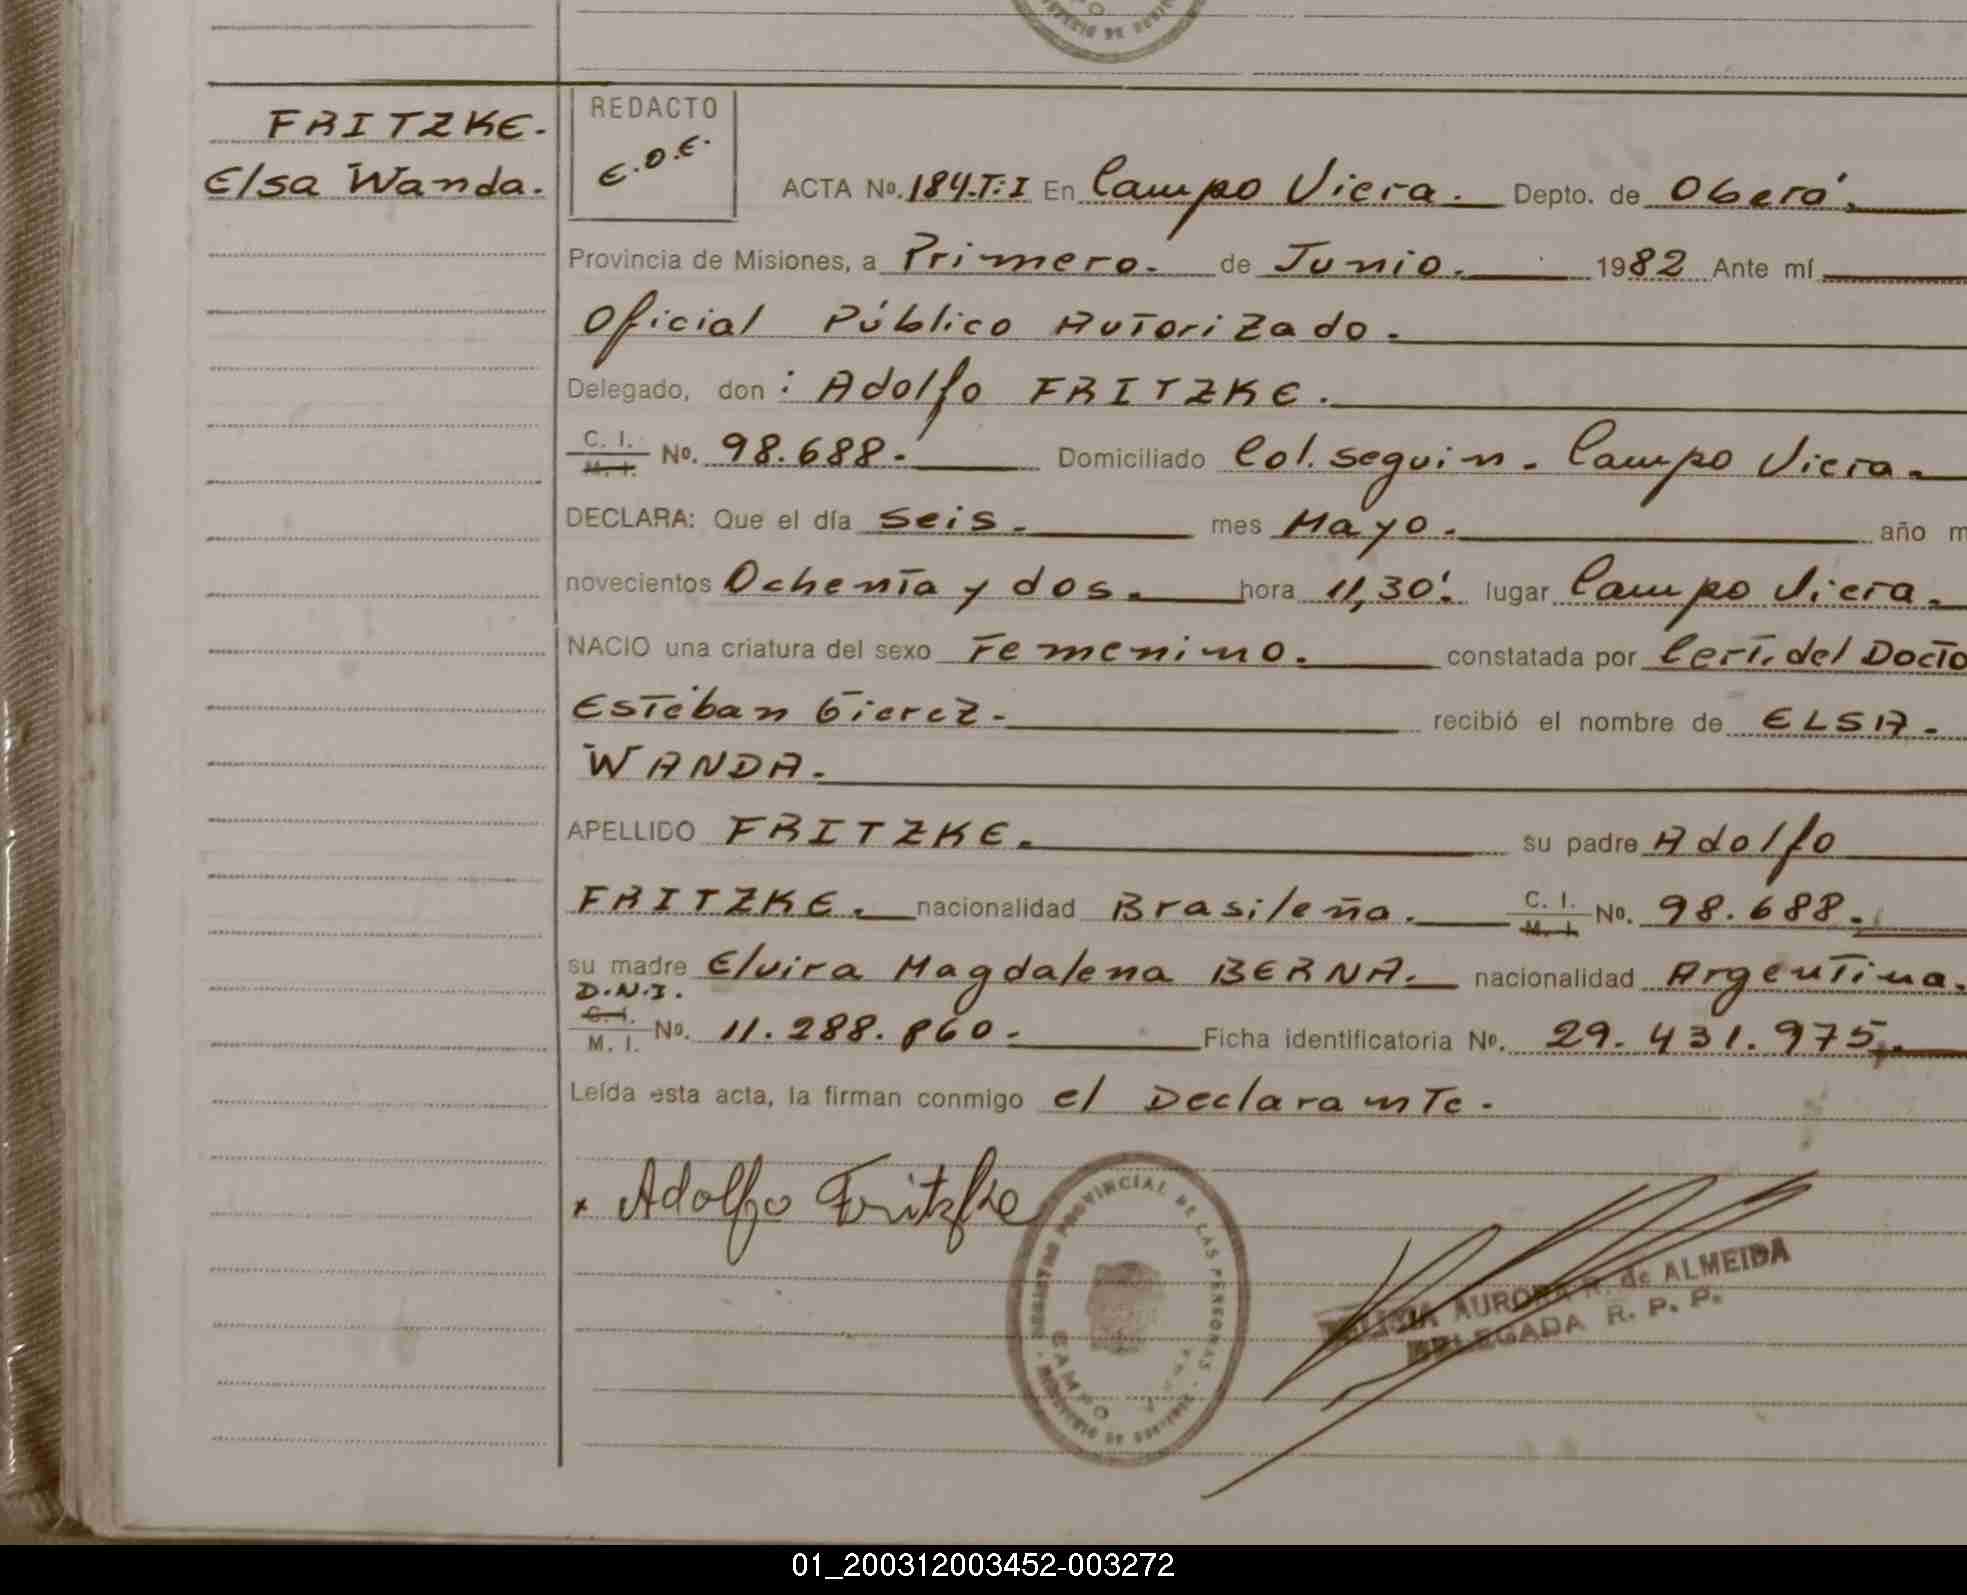 FRITZKE.
Elsa Wanda.
REDACTO
E.O.E.
ACTA No. 184.T:I En Campo Viera. Depto. de Oberá.
Provincia de Misiones, a Primero. de Junio. 1982 Ante mí
Oficial Público Autorizado.
Delegado, don: Adolfo FRITZKE.
C. I. M. I. No. 98.688. Domiciliado Col. Seguin. Campo Viera.
DECLARA: Que el día Seis. mes Mayo. año m
novecientos Ochenta y dos. hora 11,30'. lugar Campo Viera.
NACIO una criatura del sexo Femenino. constatada por Cert. del Docto
Esteban Gierez. recibió el nombre de ELSA.
WANDA.
APELLIDO FRITZKE. su padre Adolfo
FRITZKE. nacionalidad Brasileña. C. I. M. I. No. 98.688.
su madre Elvira Magdalena BERNA. nacionalidad Argentina.
D.N.I.
C. I. M. I. No. 11.288.860. Ficha identificatoria No. 29.431.975.
Leída esta acta, la firman conmigo el Declarante.
x Adolfo Fritzke
REGISTRO PROVINCIAL DE LAS PERSONAS
CAMPO
AURORA R. de ALMEIDA
DELEGADA R. P. P.
01_200312003452-003272